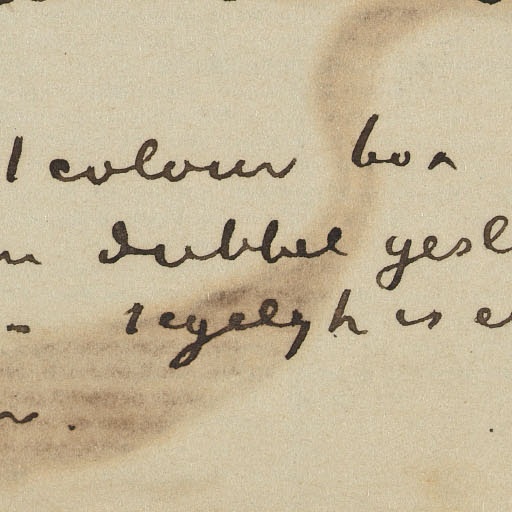 1 colour box
dubbel gesl
tegelyk is e